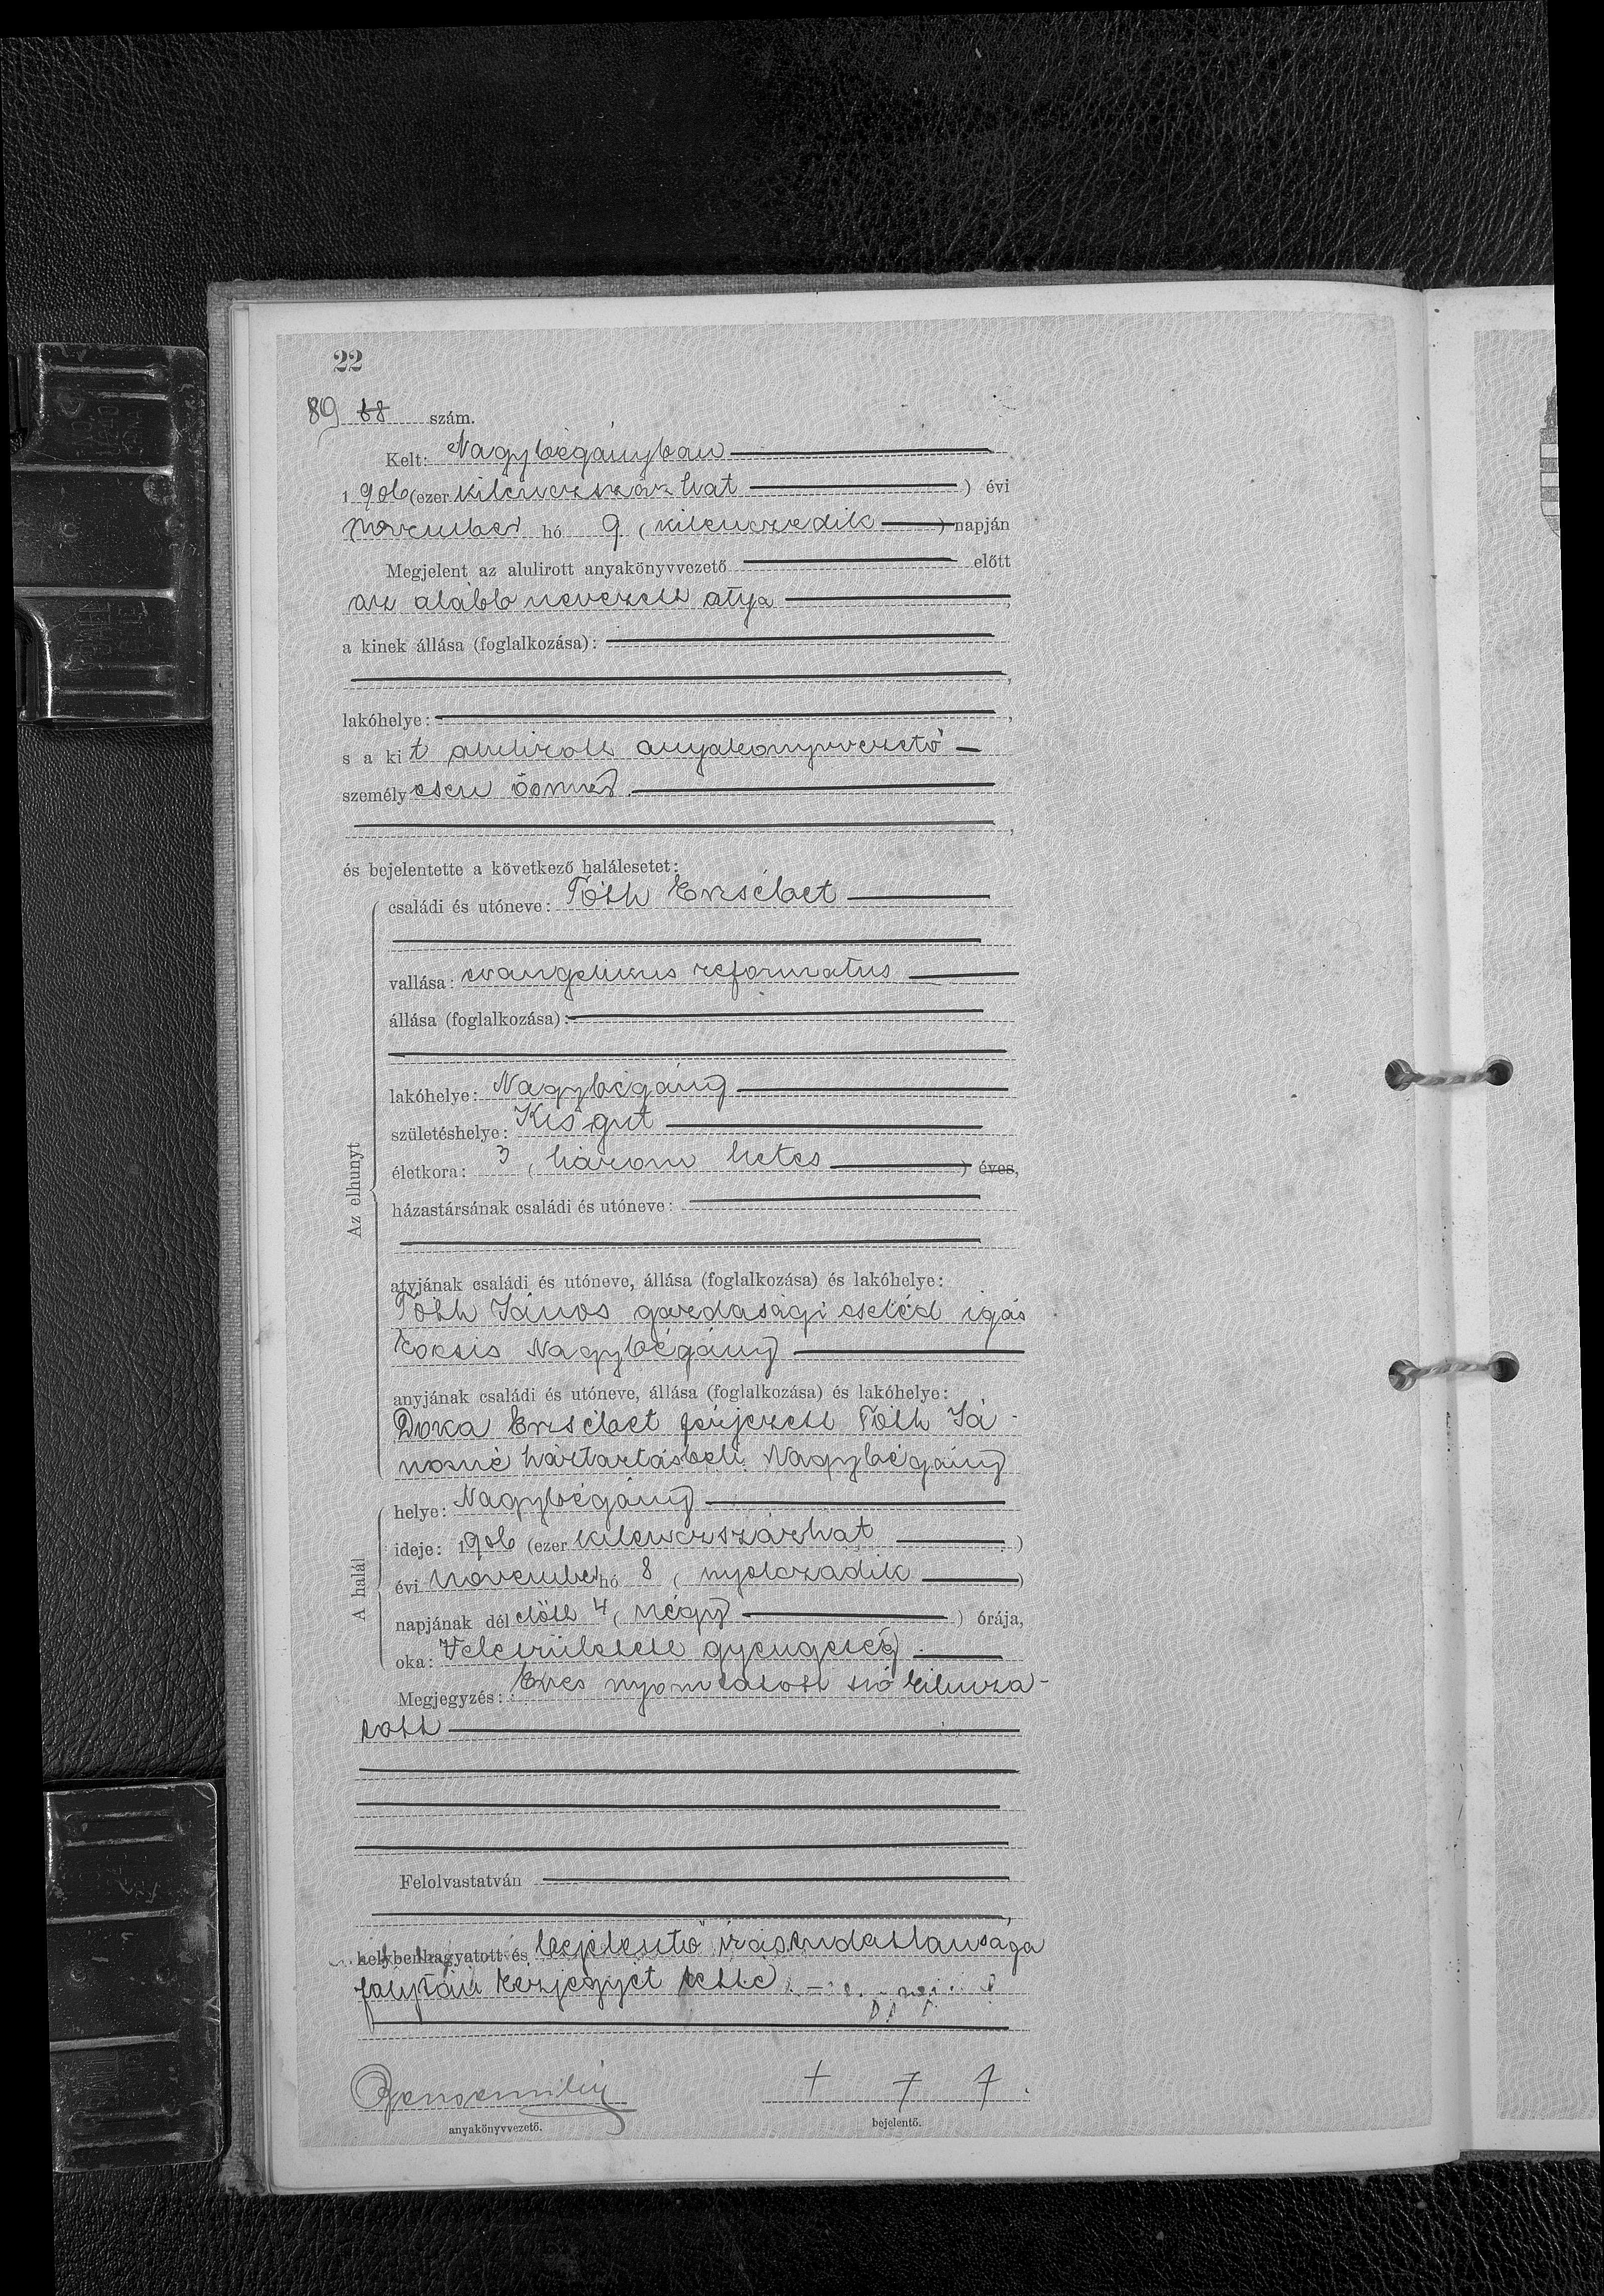 22
89 88 szám.
Kelt: Nagybégányban
1906 (ezer kilenczszáz hat) évi
november hó 9 (kilenczedik) napján
Megjelent az alulirott anyakönyvvezető előtt
az alább nevezett atya,
a kinek állása (foglalkozása):
lakóhelye:
s a kit alulirott anyakönyvvezető
személyesen ösmer.
és bejelentette a következő halálesetet:
Az elhunyt
családi és utóneve: Tóth Erzsébet
vallása: evangelikus reformatus
állása (foglalkozása):
lakóhelye: Nagybégány
születéshelye: Kis gut
életkora: 3 (három hetes) éves,
házastársának családi és utóneve:
atyjának családi és utóneve, állása (foglalkozása) és lakóhelye:
Tóth János gazdasági cseléd igás
kocsis Nagybégány
anyjának családi és utóneve, állása (foglalkozása) és lakóhelye:
Doka Erzsébet férjezett Tóth Já-
nosné háztartásbeli Nagybégány
A halál
helye: Nagybégány
ideje: 1906 (ezer kilenczszázhat)
évi november hó 8 (nyolczadik)
napjának dél előtt 4 (négy) órája,
oka: Veleszületett gyengeség
Megjegyzés: Éves nyomtatott szó kihuza-
tott
Felolvastatván
helybenhagyatott és bejelentő irástudatlansága
folytán kézjegyét tette
anyakönyvvezető.
bejelentő.